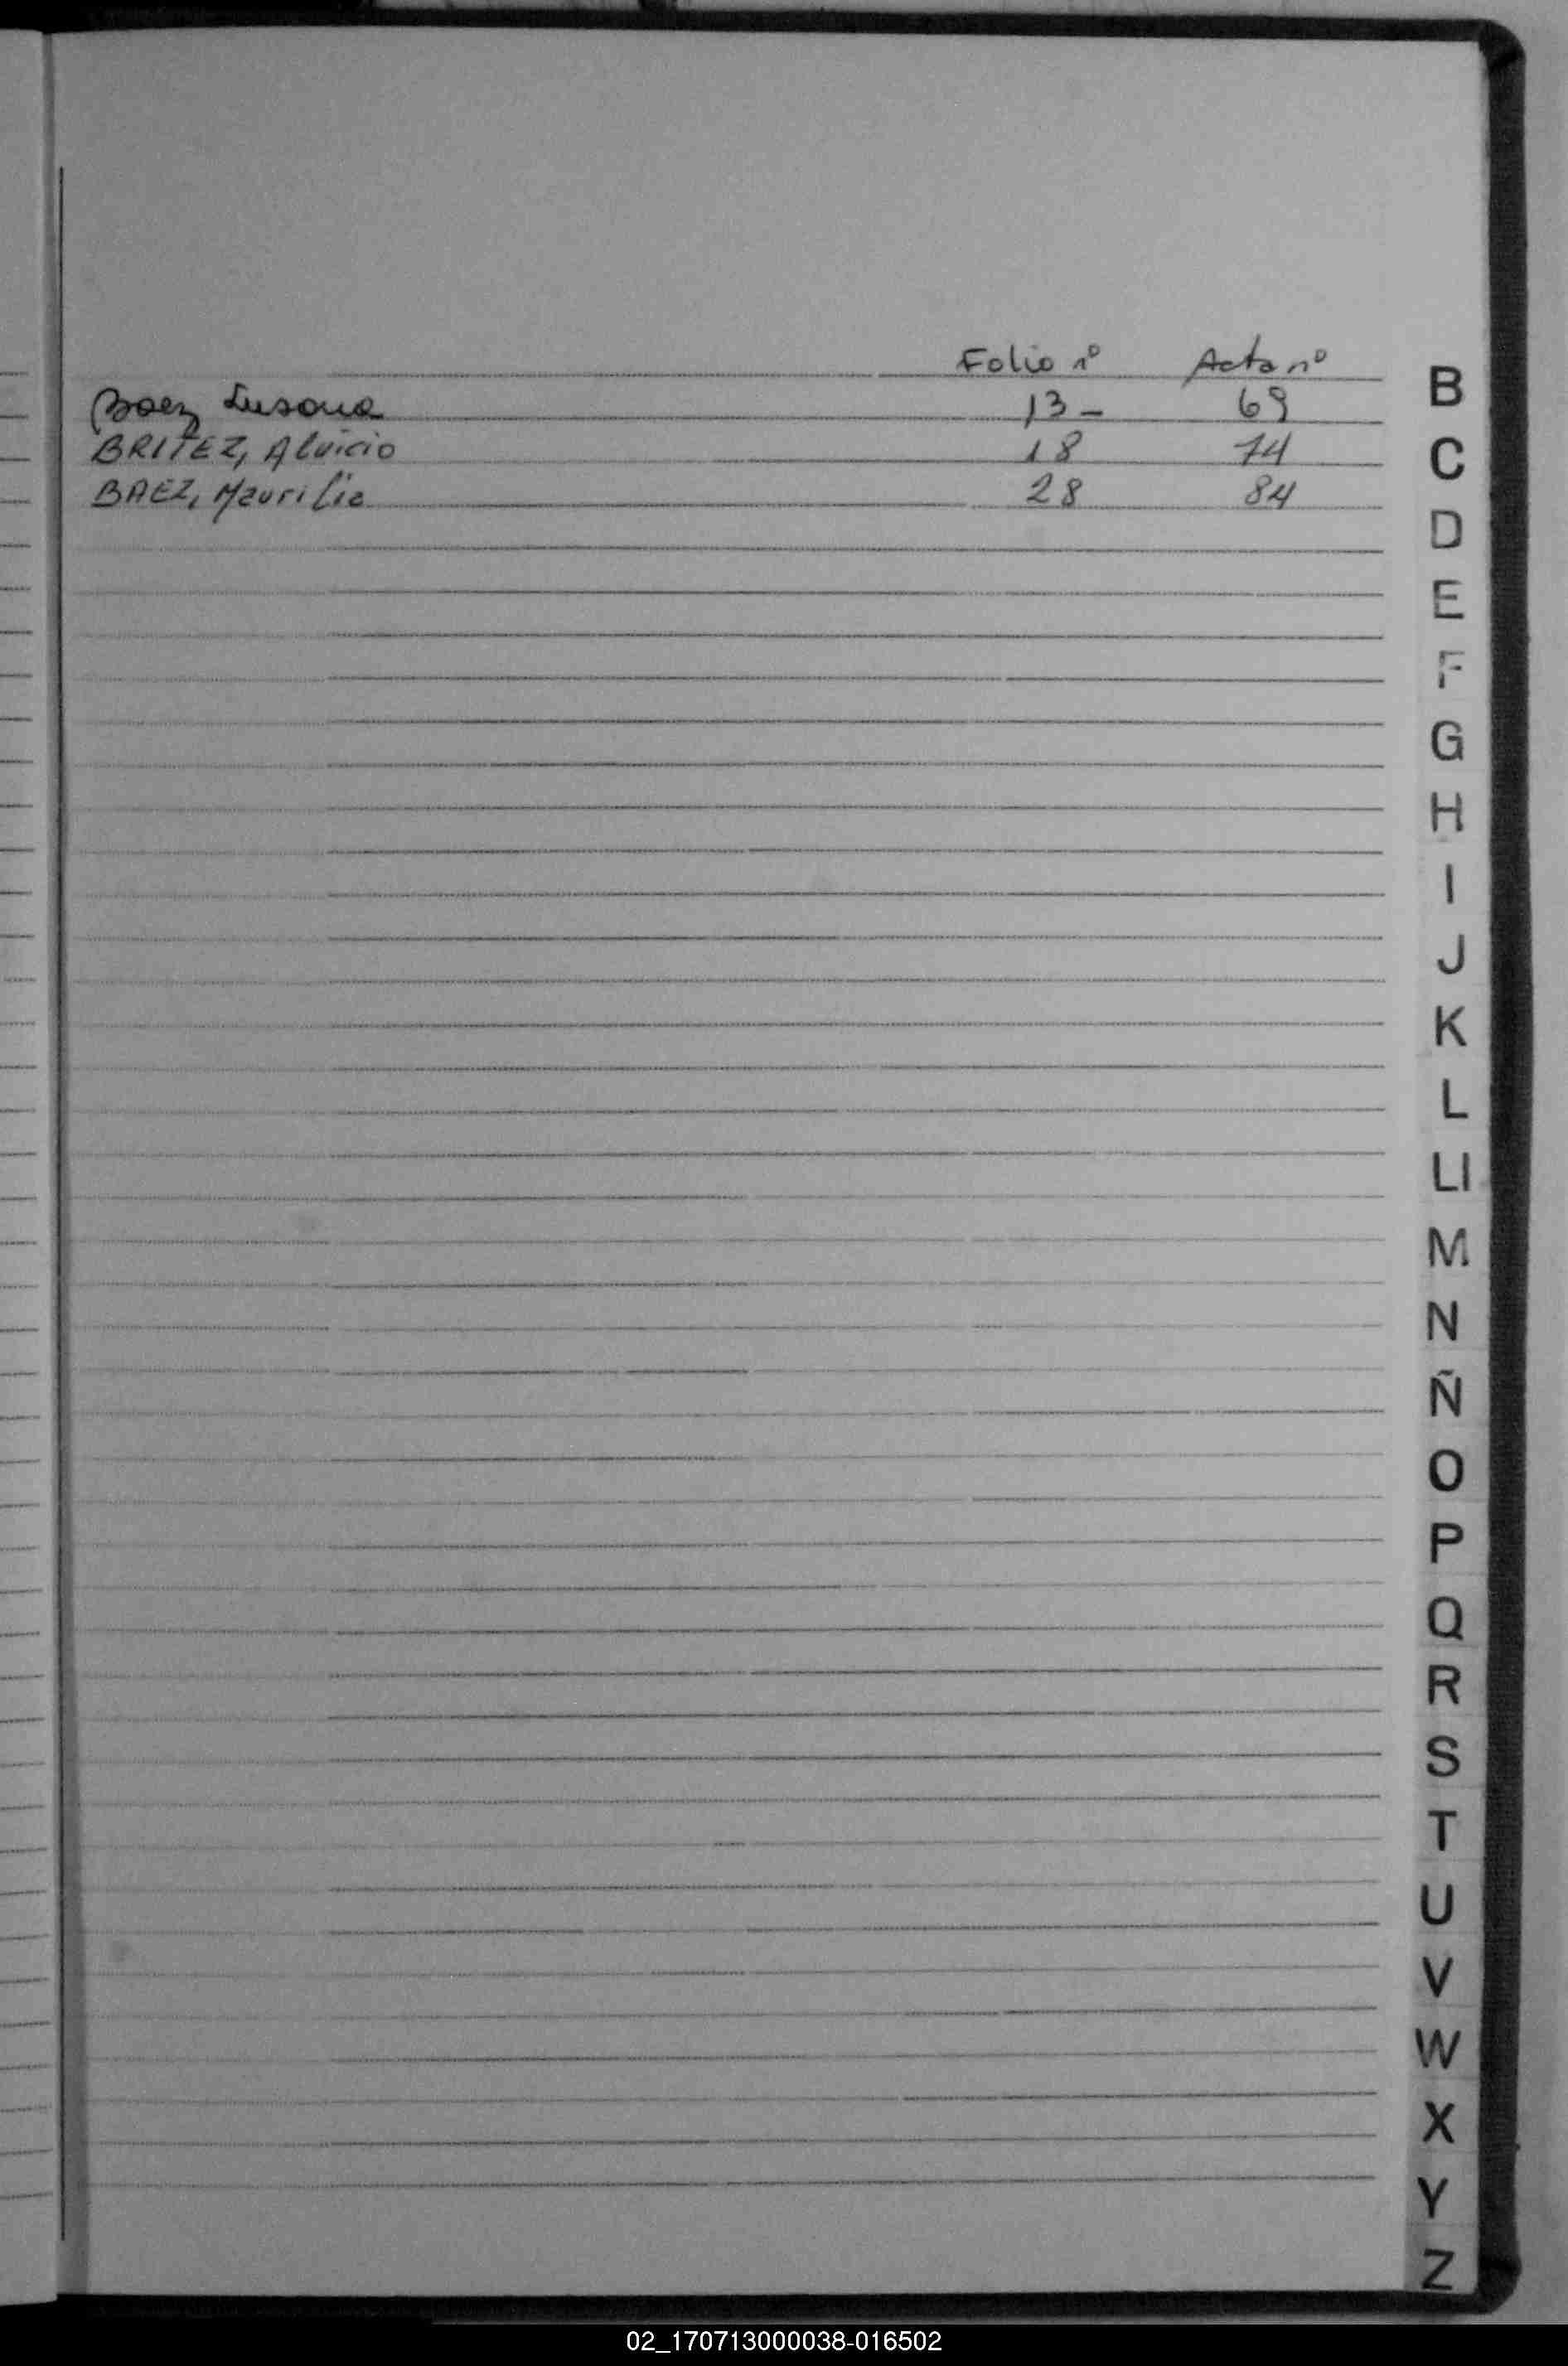 Folio nº Acta nº
Baez Susana 13- 69
BRITEZ, Aluicio 18 74
BAEZ, Maurilia 28 84
B
C
D
E
F
G
H
I
J
K
L
Ll
M
N
Ñ
O
P
Q
R
S
T
U
V
W
X
Y
Z
02_170713000038-016502